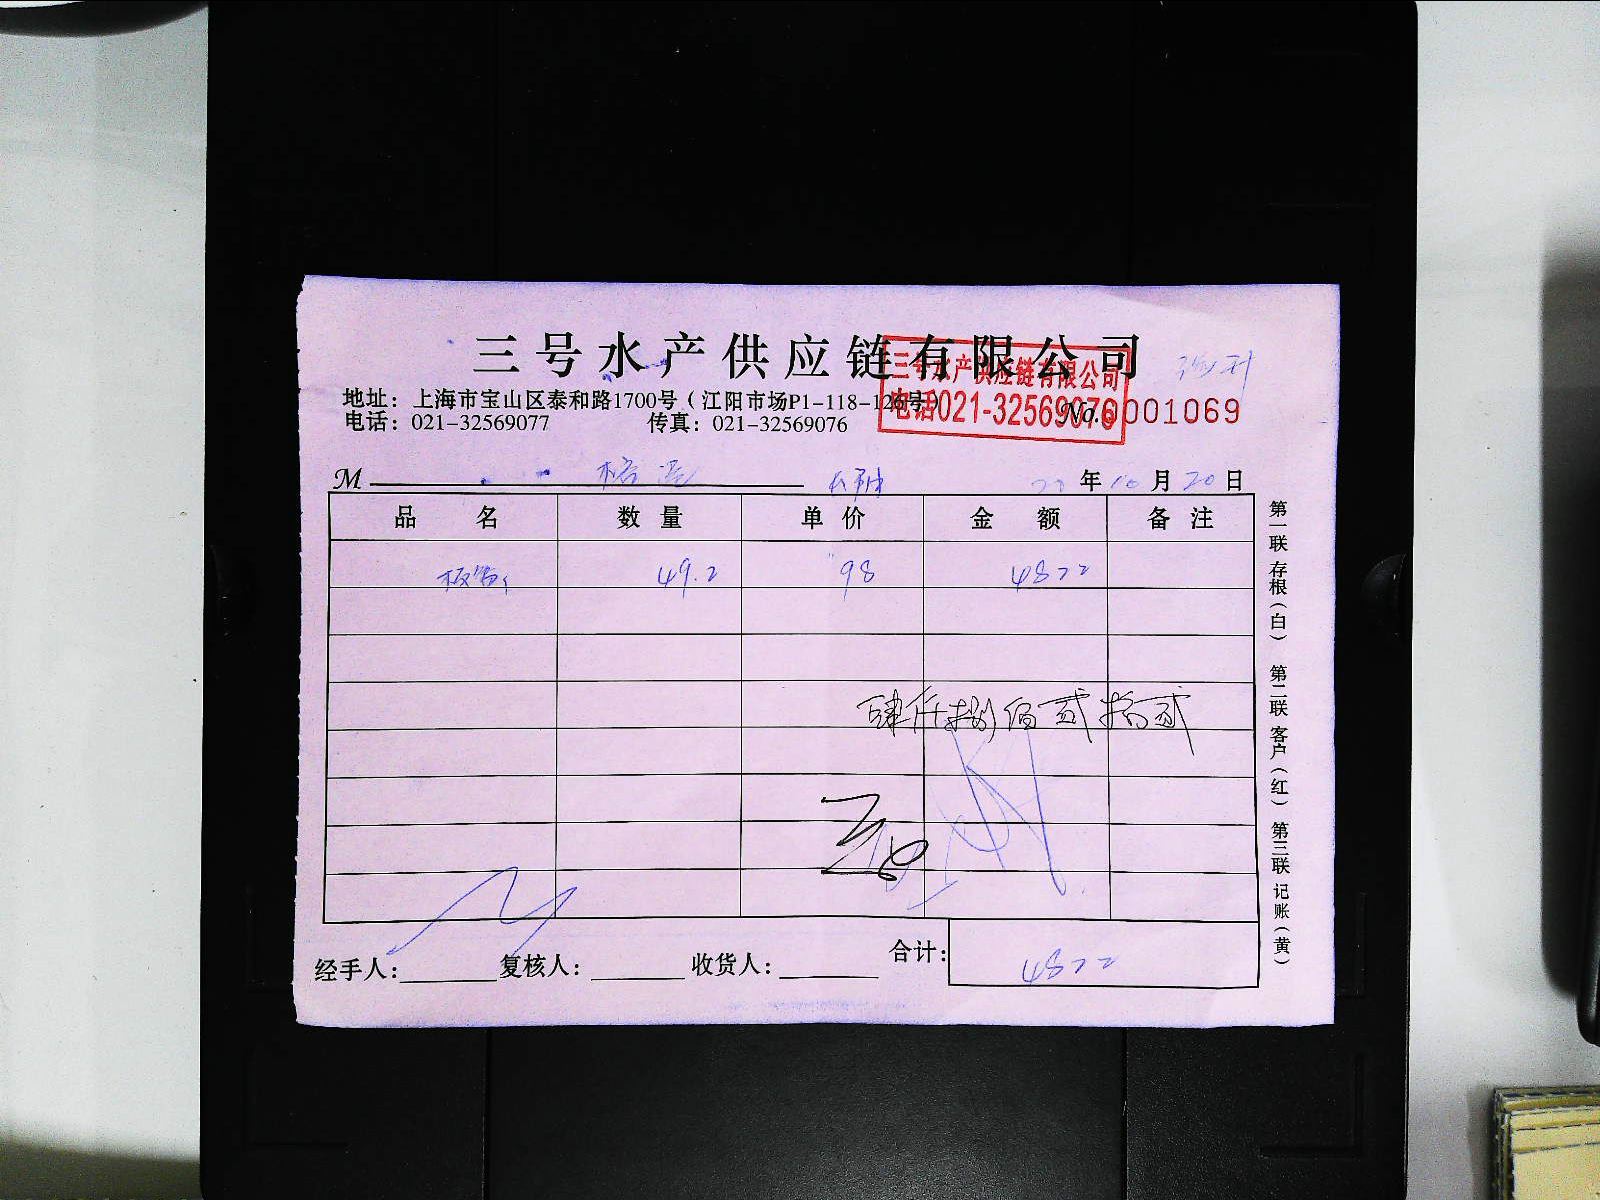 三号水产供应链有限公司
三号水产供应链有限公司
电话021-32569076
地址：上海市宝山区泰和路1700号（江阳市场P1-118-126号）
电话：021-32569077 传真：021-32569076
No. 0001069
M
年10月20日
品名 数量 单价 金额 备注
49.2 98 4822
肆仟捌佰贰拾贰
经手人： 复核人： 收货人： 合计：4822
第一联 存根（白） 第二联 客户（红） 第三联 记账（黄）